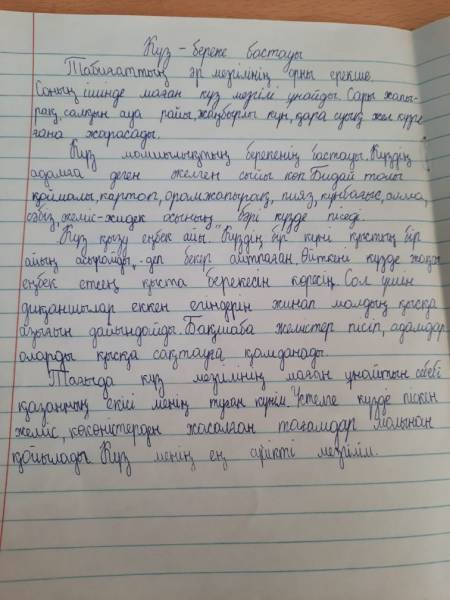 Күз - береке бастауы
Табиғаттың әр мезгілінің орны ерекше.
Соның ішінде маған күз мезгілі ұнайды. Сары жапы-
рақ, салқын ауа райы, жаңбырлы күн, қара суық жел күзге
ғана жарасады.
Күз молшылықтың берекенің бастауы. Күздің
адамға деген желген сыйы көп. Бидай толы
қоймалы, картоп, орамжапырақ, пияз, күнбағыс, алма,
қарбыз, жеміс-жидек осының бәрі күзде піседі.
Күз қызу еңбек айы. "Күздің бір күні қыстың бір
айын асырайды, - деп бекер айтпаған. Өйткені күзде жақсы
еңбек етсең қыста берекесін көресің. Сол үшін
диқаншылар еккен егіндерін жинап малдың қысқа
азығын дайындайды. Бақшада жемістер пісіп, адамдар
оларды қысқа сақтауға қамданады.
Тағыда күз мезгілінің маған ұнайтын себебі
қазанның екісі менің туған күнім. Үстелге күзде піскен
жеміс, көкөністерден жасалған тағамдар молынан
қойылады. Күз менің ең сүйікті мезгілім.